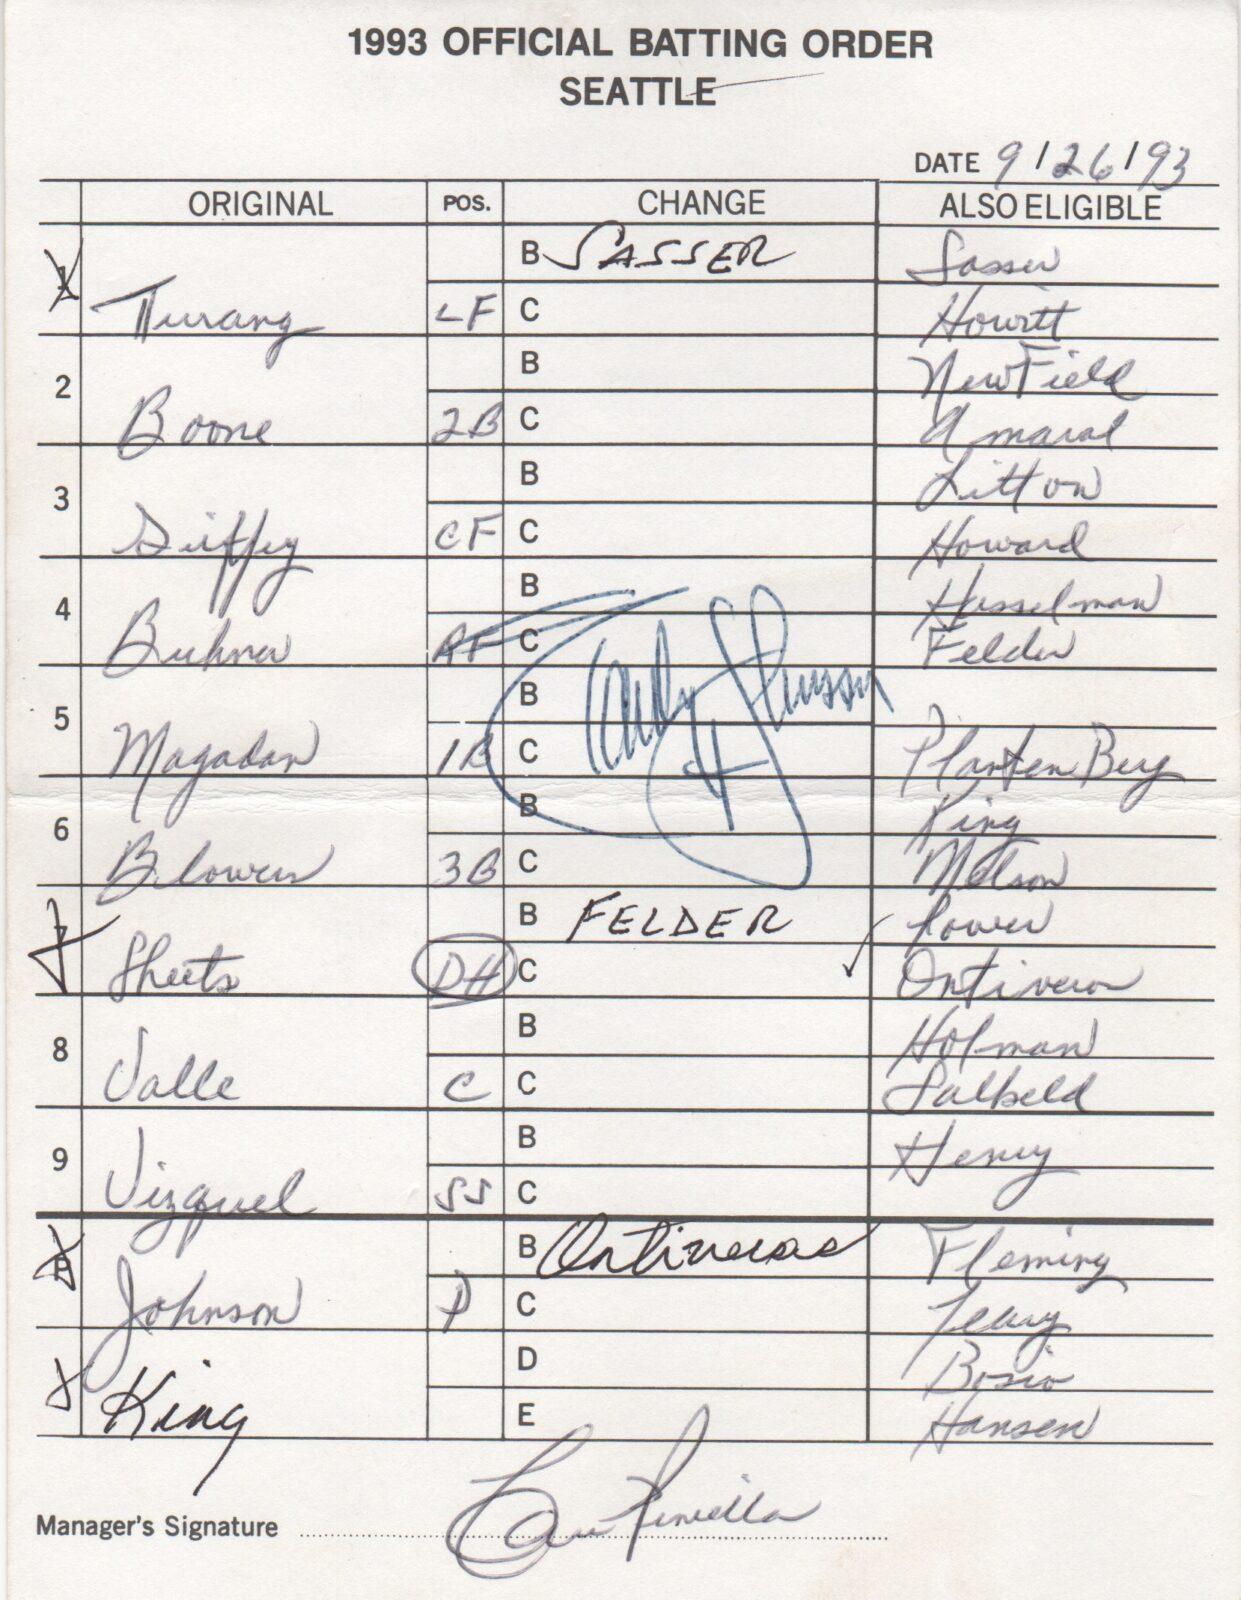 1993 OFFICIAL BATTING ORDER
SEATTLE
DATE 9/26/93
ORIGINAL POS. CHANGE ALSO ELIGIBLE
1 Turang LF B SASSER Sasser
C Howitt
2 Boone 2B B NewField
C Amaral
3 Griffey CF B Litton
C Howard
4 Buhner RF B Hasselman
C Felder
5 Magadan 1B B
C PlantenBerg
6 Blowers 3B B King
C Nelson
7 Sheets DH B FELDER Power
C Ontiveros
8 Valle C B Holman
C Salkeld
9 Vizquel SS B Henry
C
P Johnson P B Ontiveros Fleming
C Leary
King D Bosio
E Hansen
Randy Johnson
Manager's Signature Lou Piniella